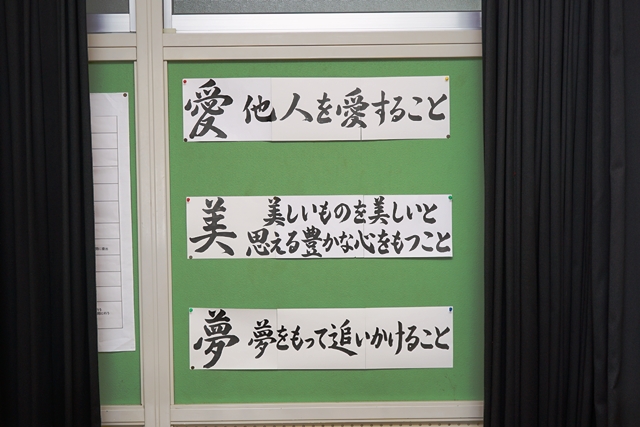 愛 他人を愛すること
美 美しいものを美しいと
思える豊かな心をもつこと
夢 夢をもって追いかけること